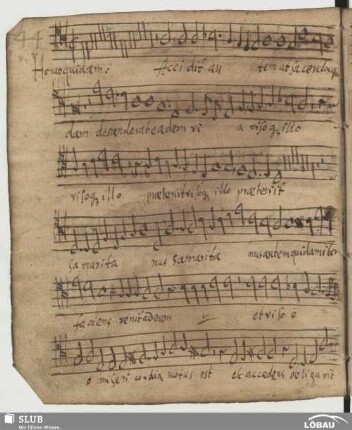 44
Homo quidam: Accidit au tem ut sacerdos qui
dam descenderat eadem vi a visoq, illo
visoq, illo præterivit visoq, illo præterivit
samarita nus samarita nus autem quidam iter
faciens venit ad eum et viso e
o misericordia motus est et accedens obligavit
SLUB
Wir führen Wissen.
LÖBAU